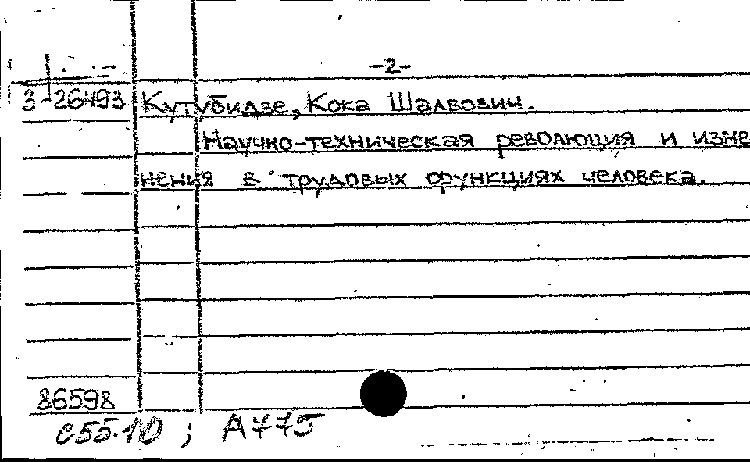 -2-
3-26493 Кутубидзе, Кока Шалвович.
Научно-техническая революция и изме
нения в трудовых функциях человека.
86598
055.10 ; А775